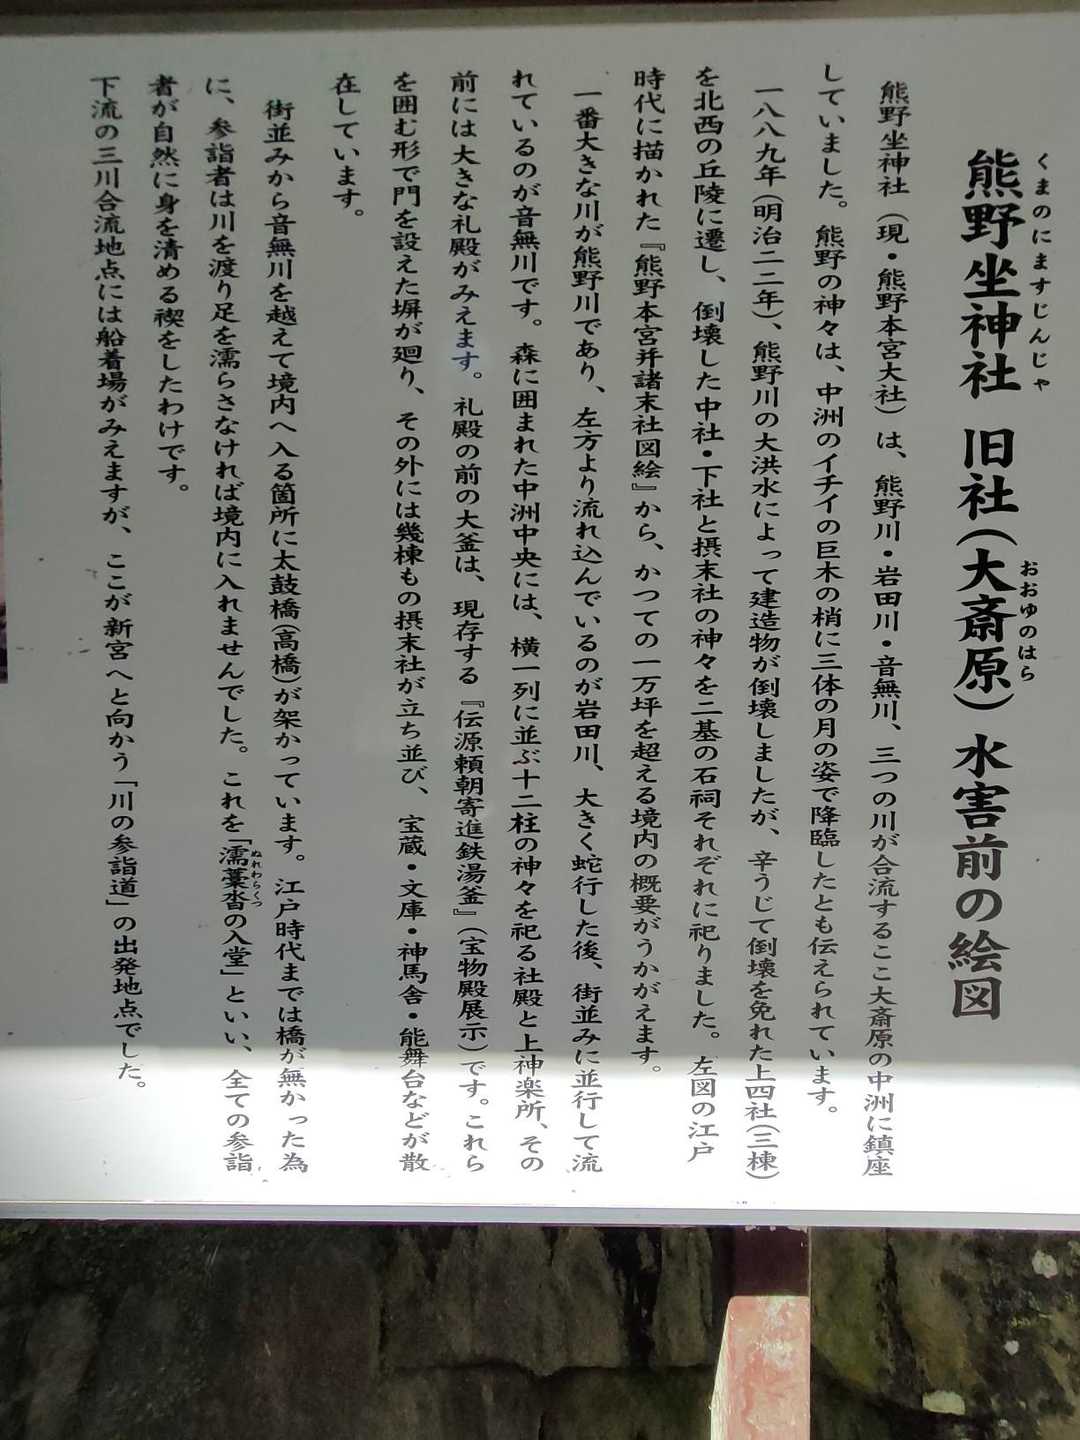 くまのにますじんじゃ
おおゆのはら
熊野坐神社 旧社(大斎原)水害前の絵図
熊野坐神社(現・熊野本宮大社)は、熊野川・岩田川・音無川、三つの川が合流するここ大斎原の中洲に鎮座
していました。熊野の神々は、中洲のイチイの巨木の梢に三体の月の姿で降臨したとも伝えられています。
一八八九年(明治二二年)、熊野川の大洪水によって建造物が倒壊しましたが、辛うじて倒壊を免れた上四社(三棟)
を北西の丘陵に遷し、倒壊した中社・下社と摂末社の神々を二基の石祠それぞれに祀りました。左図の江戸
時代に描かれた『熊野本宮并諸末社図絵』から、かつての一万坪を超える境内の概要がうかがえます。
一番大きな川が熊野川であり、左方より流れ込んでいるのが岩田川、大きく蛇行した後、街並みに並行して流
れているのが音無川です。森に囲まれた中洲中央には、横一列に並ぶ十二柱の神々を祀る社殿と上神楽所、その
前には大きな礼殿がみえます。礼殿の前の大釜は、現存する『伝源頼朝寄進鉄湯釜』(宝物殿展示)です。これら
を囲む形で門を設えた塀が廻り、その外には幾棟もの摂末社が立ち並び、宝蔵・文庫・神馬舎・能舞台などが散
在しています。
街並みから音無川を越えて境内へ入る箇所に太鼓橋(高橋)が架かっています。江戸時代までは橋が無かった為
に、参詣者は川を渡り足を濡らさなければ境内に入れませんでした。これを「濡藁沓の入堂」といい、全ての参詣
ぬれわらくつ
者が自然に身を清める禊をしたわけです。
下流の三川合流地点には船着場がみえますが、ここが新宮へと向かう「川の参詣道」の出発地点でした。